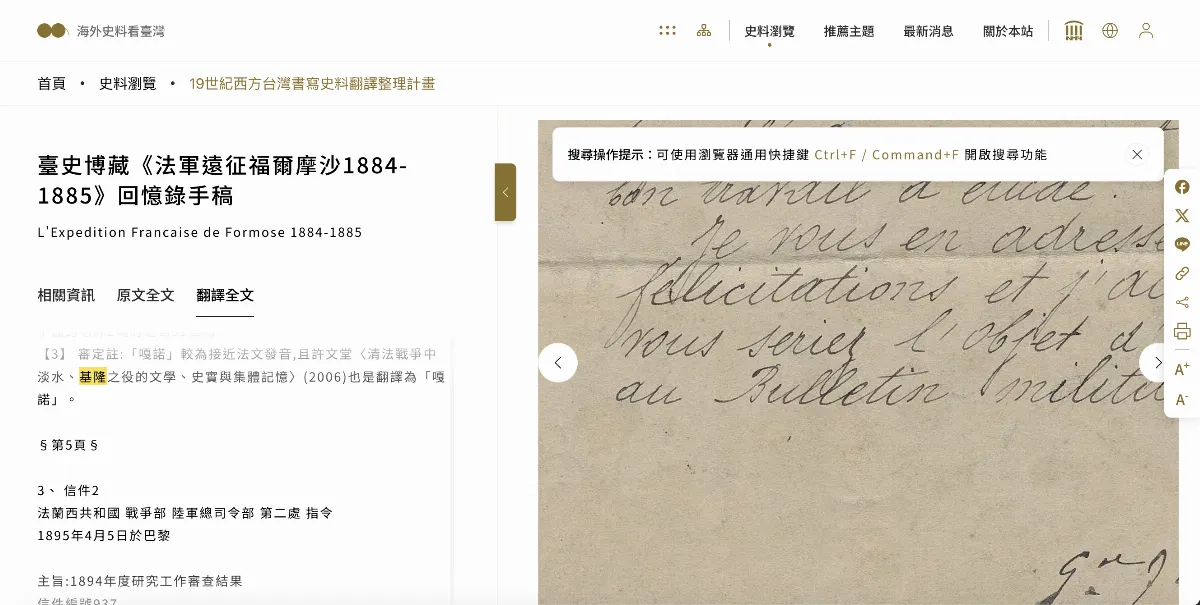 海外史料看臺灣
史料瀏覽
推薦主題
最新消息
關於本站
首頁 • 史料瀏覽 • 19世紀西方台灣書寫史料翻譯整理計畫
臺史博藏《法軍遠征福爾摩沙1884-
1885》回憶錄手稿
L'Expedition Francaise de Formose 1884-1885
相關資訊
原文全文
翻譯全文
【3】 審定註:「嘎諾」較為接近法文發音,且許文堂〈清法戰爭中
淡水、基隆之役的文學、史實與集體記憶〉(2006)也是翻譯為「嘎
諾」。
§第5頁§
3、 信件2
法蘭西共和國 戰爭部 陸軍總司令部 第二處 指令
1895年4月5日於巴黎
主旨:1894年度研究工作審查結果
信件編號937
搜尋操作提示：可使用瀏覽器通用快捷鍵 Ctrl+F / Command+F 開啟搜尋功能
bon travail d'étude.
Je vous en adresse
félicitations et j'ai
vous seriez l'objet d'
au Bulletin milit
LINE
A+
A-